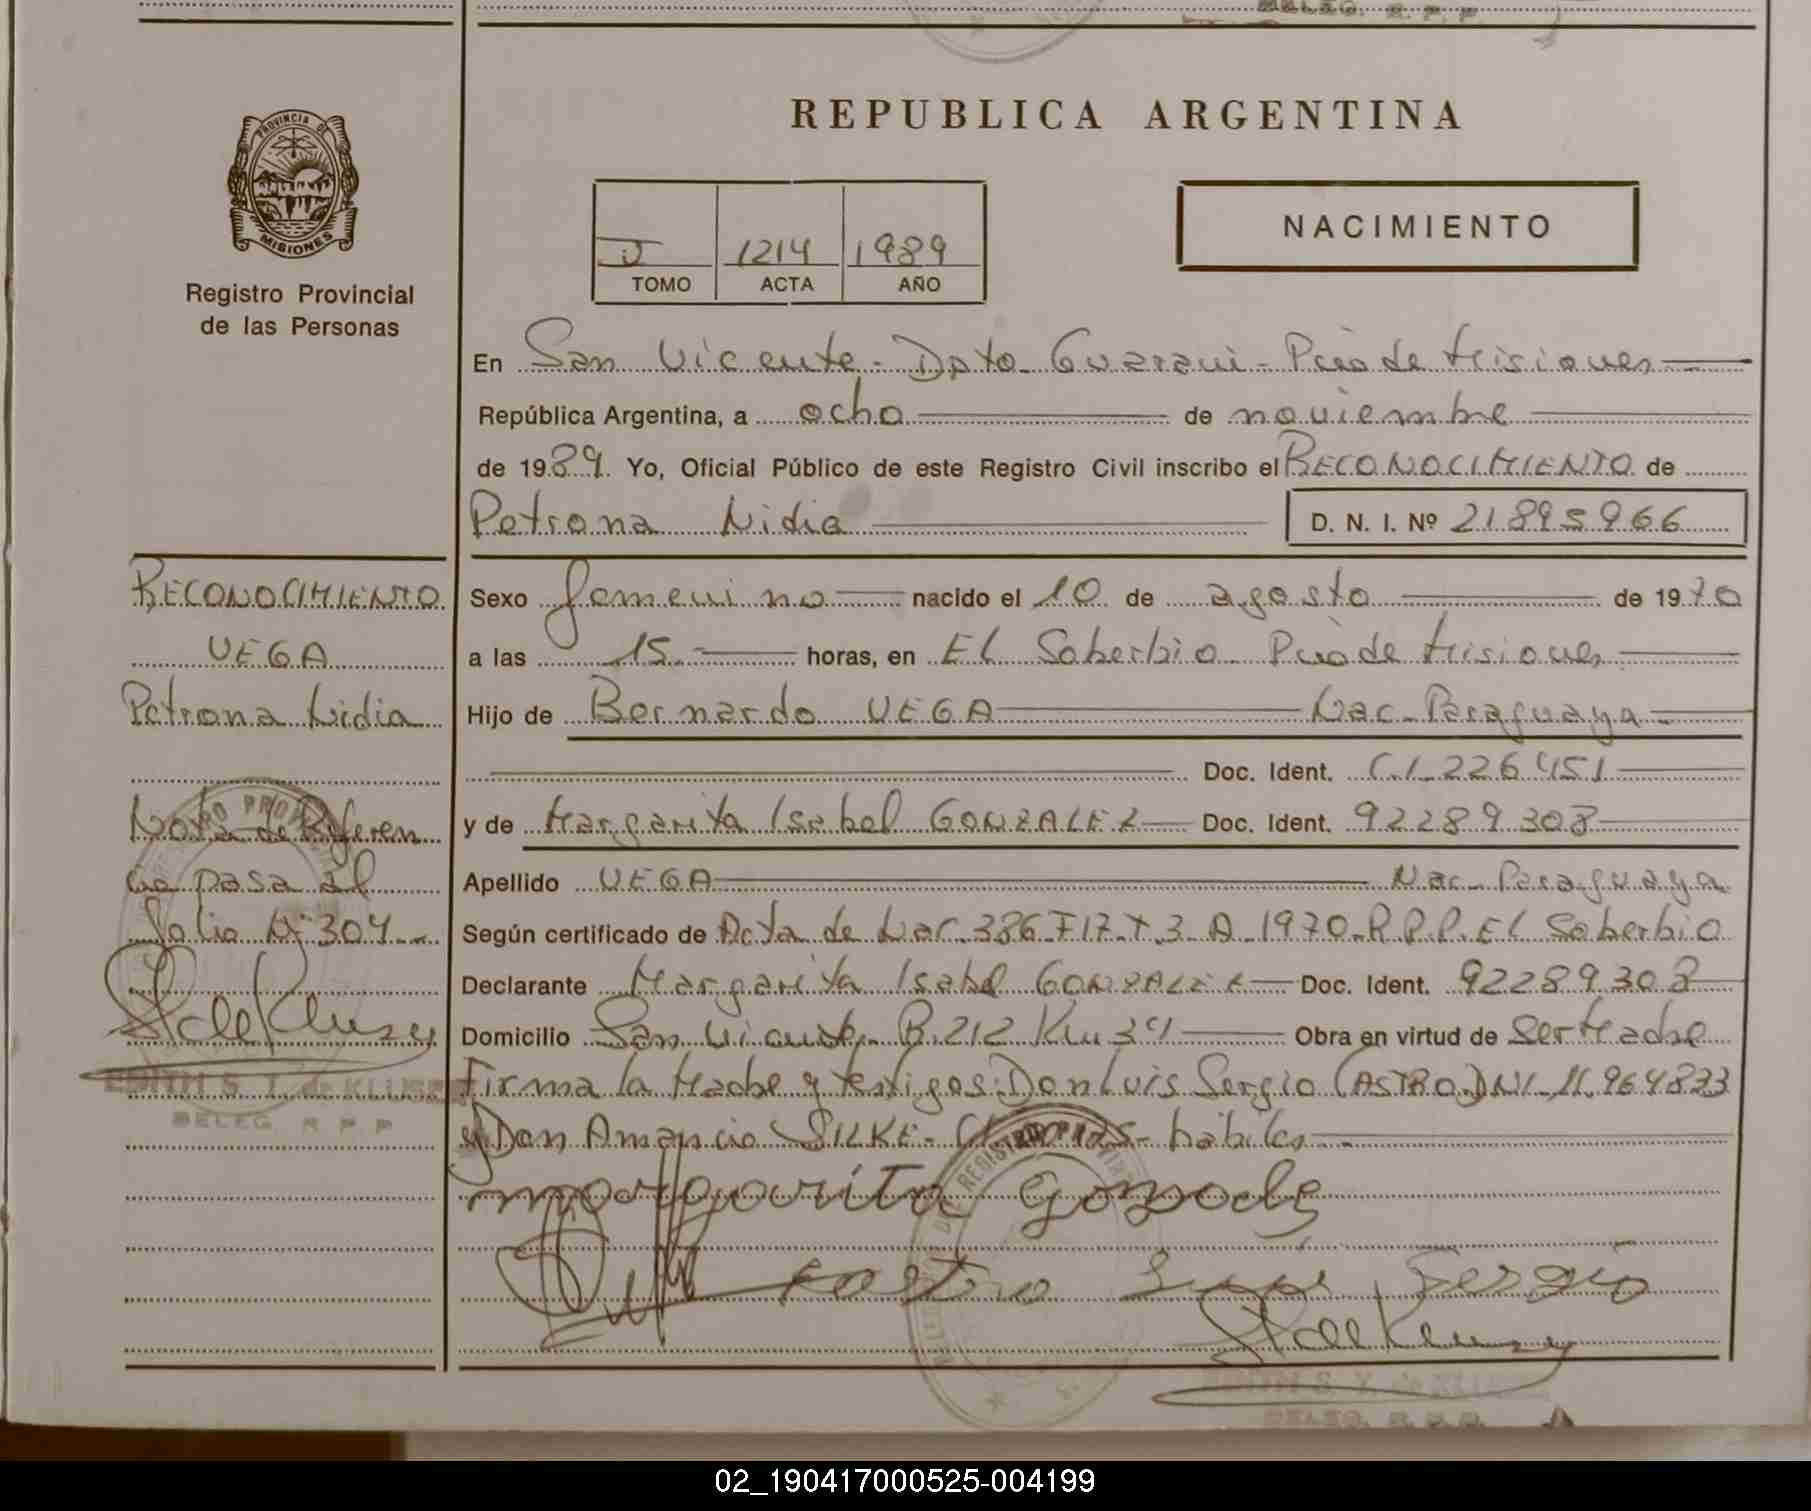 BELEG. R. P. P.
PROVINCIA DE
MISIONES
Registro Provincial
de las Personas
REPUBLICA ARGENTINA
NACIMIENTO
1214 1989
TOMO ACTA AÑO
En San Vicente - Dpto Guarani - Pcia de Misiones
República Argentina, a ocho de noviembre
de 1989. Yo, Oficial Público de este Registro Civil inscribo el RECONOCIMIENTO de
Petrona Nidia D. N. I. Nº 21895966
RECONOCIMIENTO
VEGA
Petrona Nidia
Nota de Referen
cia pasa al
folio Nº 304
EDITH S. Y. de KLUSE
BELEG. R P P
Sexo femenino nacido el 10 de agosto de 1970
a las 15 horas, en El Soberbio Pcia de Misiones
Hijo de Bernardo VEGA Nac. Paraguaya
Doc. Ident. C.I. 226451
y de Margarita Isabel GONZALEZ Doc. Ident. 92289308
Apellido VEGA Nac. Paraguaya
Según certificado de Acta de Nac 386 F 17 T. 3 A 1970 R.P.P. El Soberbio
Declarante Margarita Isabel GONZALEZ Doc. Ident. 92289308
Domicilio San Vicente B. 212 Km 34 Obra en virtud de Ser Madre
Firma la Madre y testigos: Don Luis Sergio CASTRO DNI 11.964833
y Don Amancio SILKE - habiles
margarita Gonzalez
Castro Luis Sergio
EDITH S. Y. de KLUSE
BELEG. R. P. P.
02_190417000525-004199